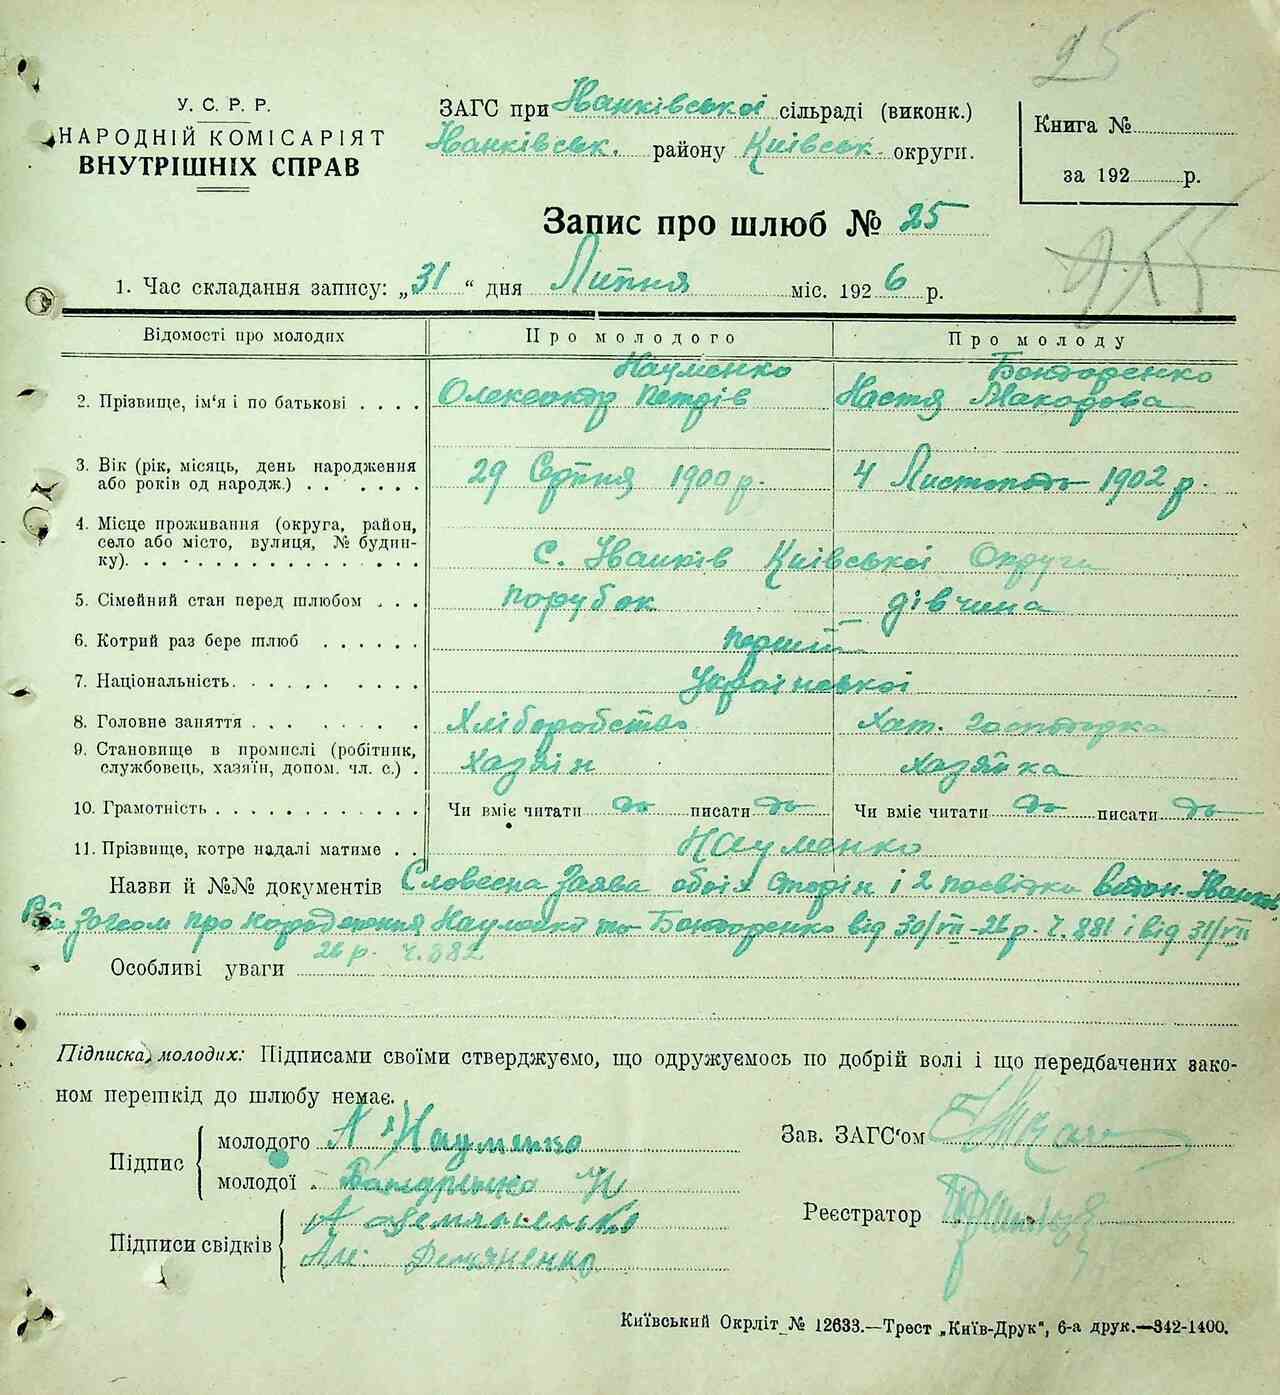 25
У. С. Р. Р.
НАРОДНІЙ КОМІСАРІЯТ
ВНУТРІШНІХ СПРАВ
ЗАГС при Іванківської сільраді (виконк.)
Іванківськ. району Київськ. округи.
Книга №
за 192 р.
Запис про шлюб № 25
1. Час складання запису: „31“ дня Липня міс. 1926 р.
Відомості про молодих Про молодого Про молоду
Науменко Бондоренко
2. Прізвище, ім‘я і по батькові Олександр Петрів Настя Макарова
3. Вік (рік, місяць, день народження
або років од народж.) 29 Серпня 1900 р. 4 Листопада 1902 р.
4. Місце проживання (округа, район,
село або місто, вулиця, № будин-
ку). С. Іванків Київської Округи
5. Сімейний стан перед шлюбом порубок дівчина
6. Котрий раз бере шлюб перший
7. Національність. Української
8. Головне заняття Хліборобство Хат. господарка
9. Становище в промислі (робітник,
службовець, хазяїн, допом. чл. с.) Хазяін Хазяйка
10. Грамотність Чи вміє читати да писати да Чи вміє читати да писати да
11. Прізвище, котре надалі матиме Науменко
Назви й №№ документів Словесна Заява обоіх сторін і 2 посвідки
Загсом про народження Науменка та Бондоренко від 30/VII-26 р. Ч. 881 і від 31/VII
26 р. Ч. 882
Особливі уваги
Підписка молодих: Підписами своїми стверджуємо, що одружуємось по добрій волі і що передбачених зако-
ном перешкід до шлюбу немає.
Підпис
молодого А Науменко
молодої
Зав. ЗАГС‘ом
Реєстратор
Підписи свідків
А Демяненко
Ан. Демяненко
Київський Окрліт № 12633.—Трест „Київ-Друк“, 6-а друк.—342-1400.